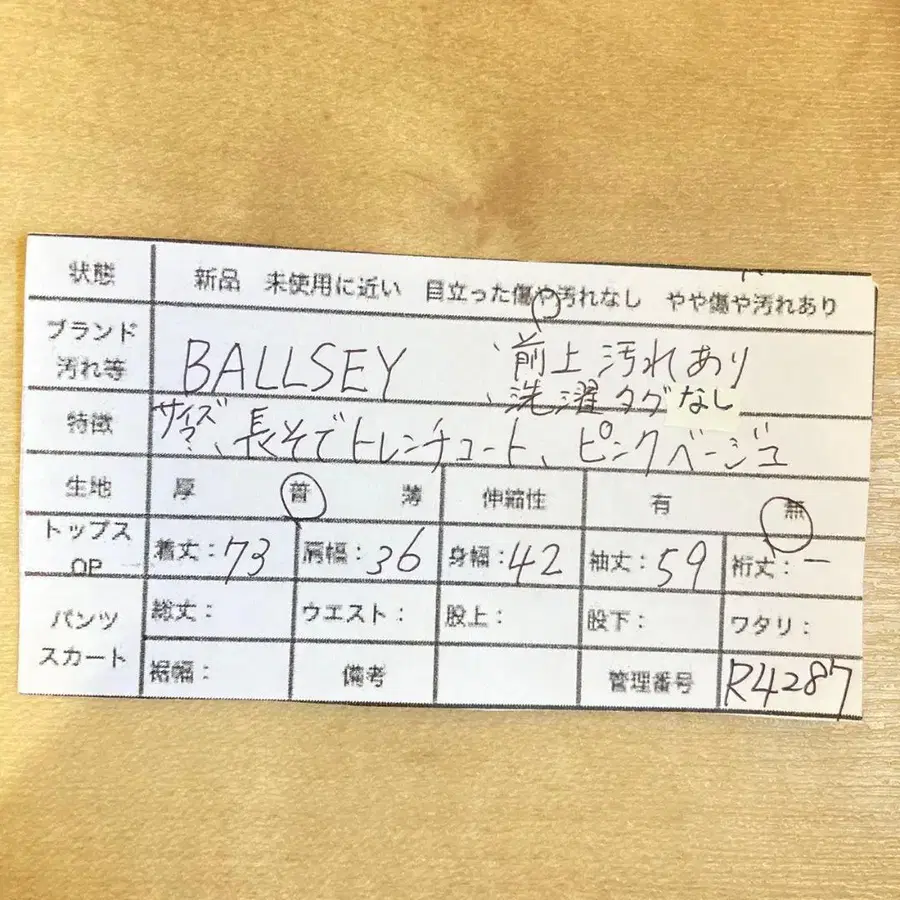 状態 新品 未使用に近い 目立った傷や汚れなし やや傷や汚れあり
ブランド
汚れ等
BALLSEY
、前上汚れあり
、洗濯タグなし
特徴 サイズ ?、長そでトレンチコート、ピンクベージュ
生地 厚 普 薄 伸縮性 有 無
トップス
OP
着丈:73 肩幅:36 身幅:42 袖丈:59 裄丈:ー
パンツ
スカート
総丈: ウエスト: 股上: 股下: ワタリ:
裾幅: 備考 管理番号 R4287